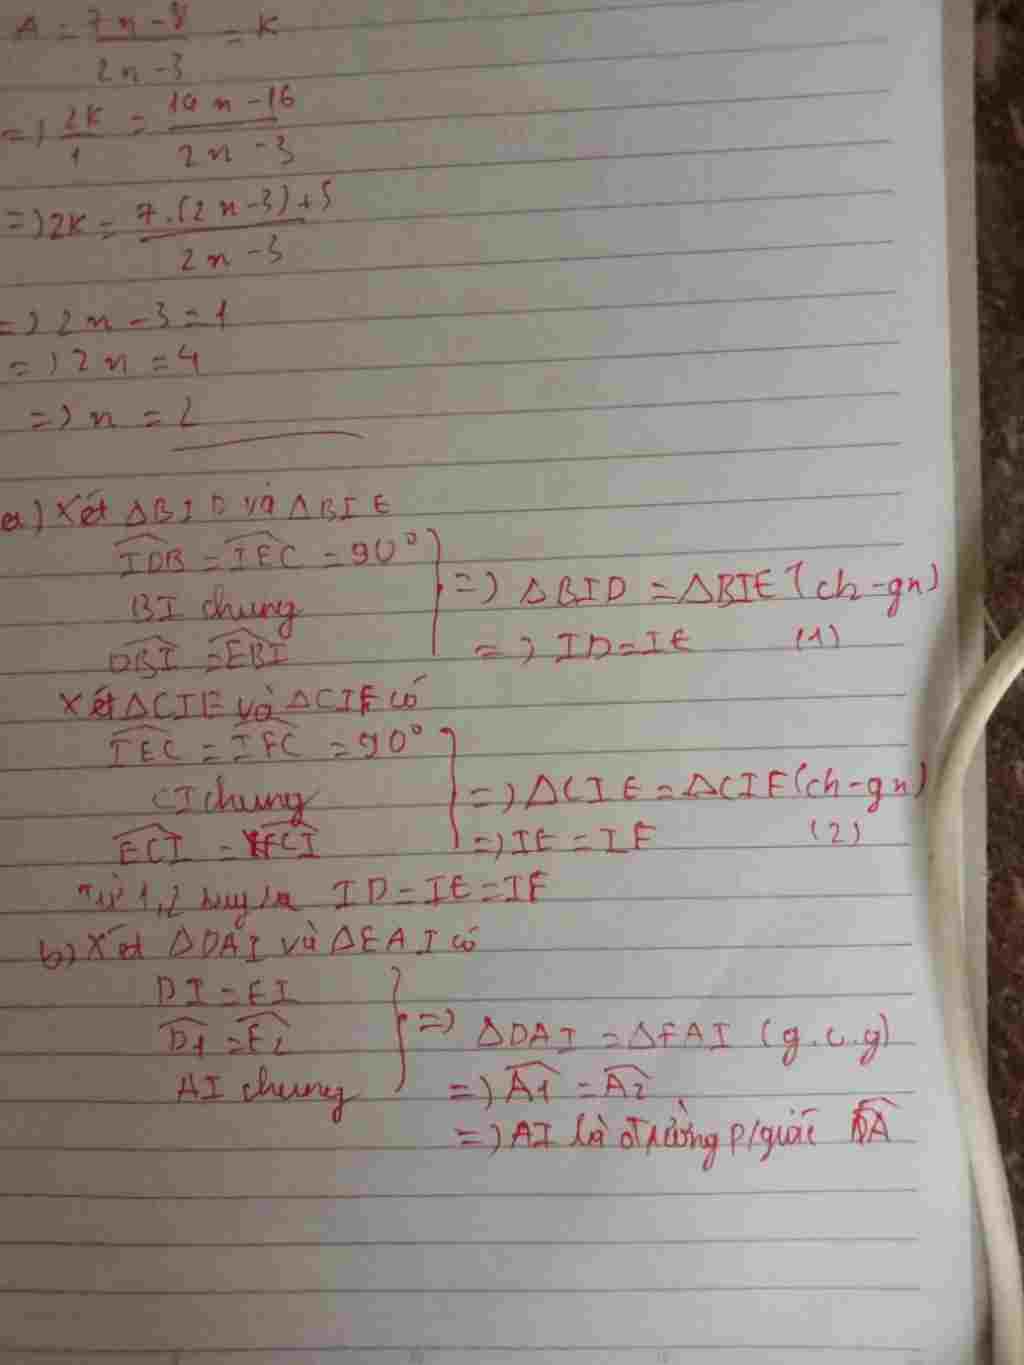 A = 7n - 8 / 2n - 3 = K
=> 2K / 1 = 14n - 16 / 2n - 3
=> 2K = 7.(2n - 3) + 5 / 2n - 3
=> 2n - 3 = 1
=> 2n = 4
=> n = 2
a) Xét ΔBID và ΔBIE
IDB = IEC = 90°
BI chung
DBI = EBI
=> ΔBID = ΔBIE (ch-gn)
=> ID = IE (1)
Xét ΔCIE và ΔCIF có
IEC = IFC = 90°
CI chung
ECI = FCI
=> ΔCIE = ΔCIF (ch-gn)
=> IE = IF (2)
Từ 1,2 suy ra ID = IE = IF
b) Xét ΔDAI và ΔEAI có
DI = EI
D1 = E2
AI chung
=> ΔDAI = ΔFAI (g.c.g)
=> A1 = A2
=> AI là đường p/giác